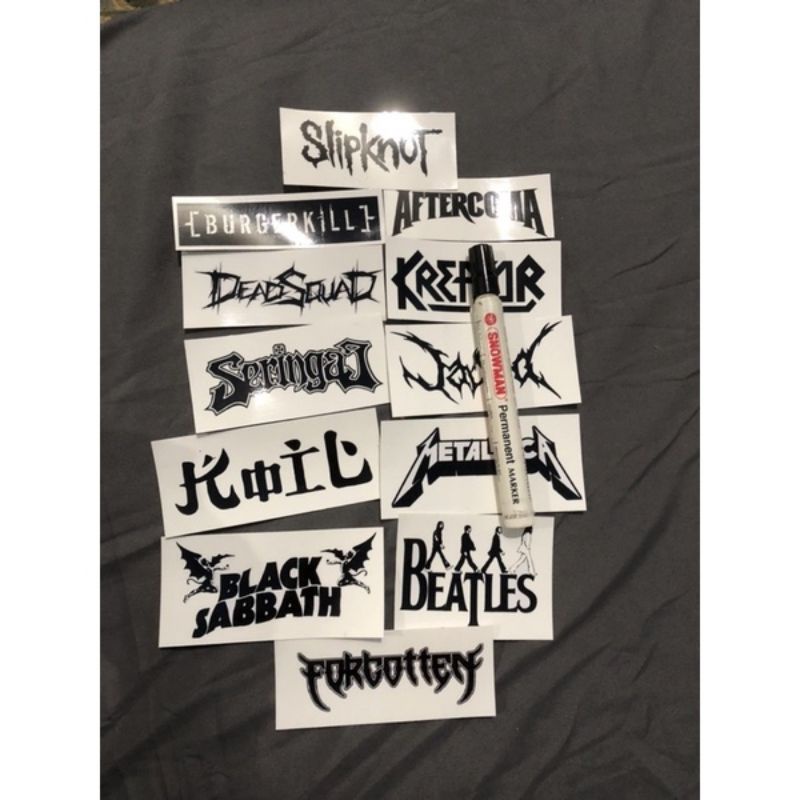 Slipknot
[BURGERKILL]
AFTERCOMA
DEADSQUAD
KREATOR
Seringai
KOIL
METALLICA
(SNOWMAN) Permanent MARKER
BLACK
SABBATH
BEATLES
FORGOTTEN